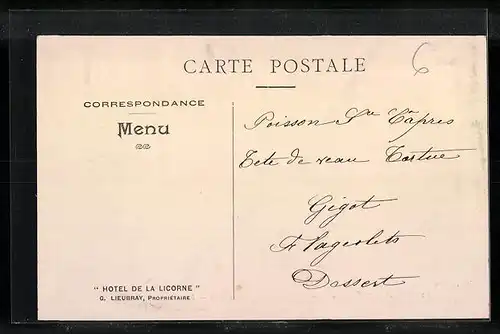 CARTE POSTALE
6
CORRESPONDANCE
Menu
Poisson Sce Capres
Tete de veau Tortue
Gigot
Flageolets
Dessert
" HOTEL DE LA LICORNE "
G. LIEUBRAY, PROPRIÉTAIRE